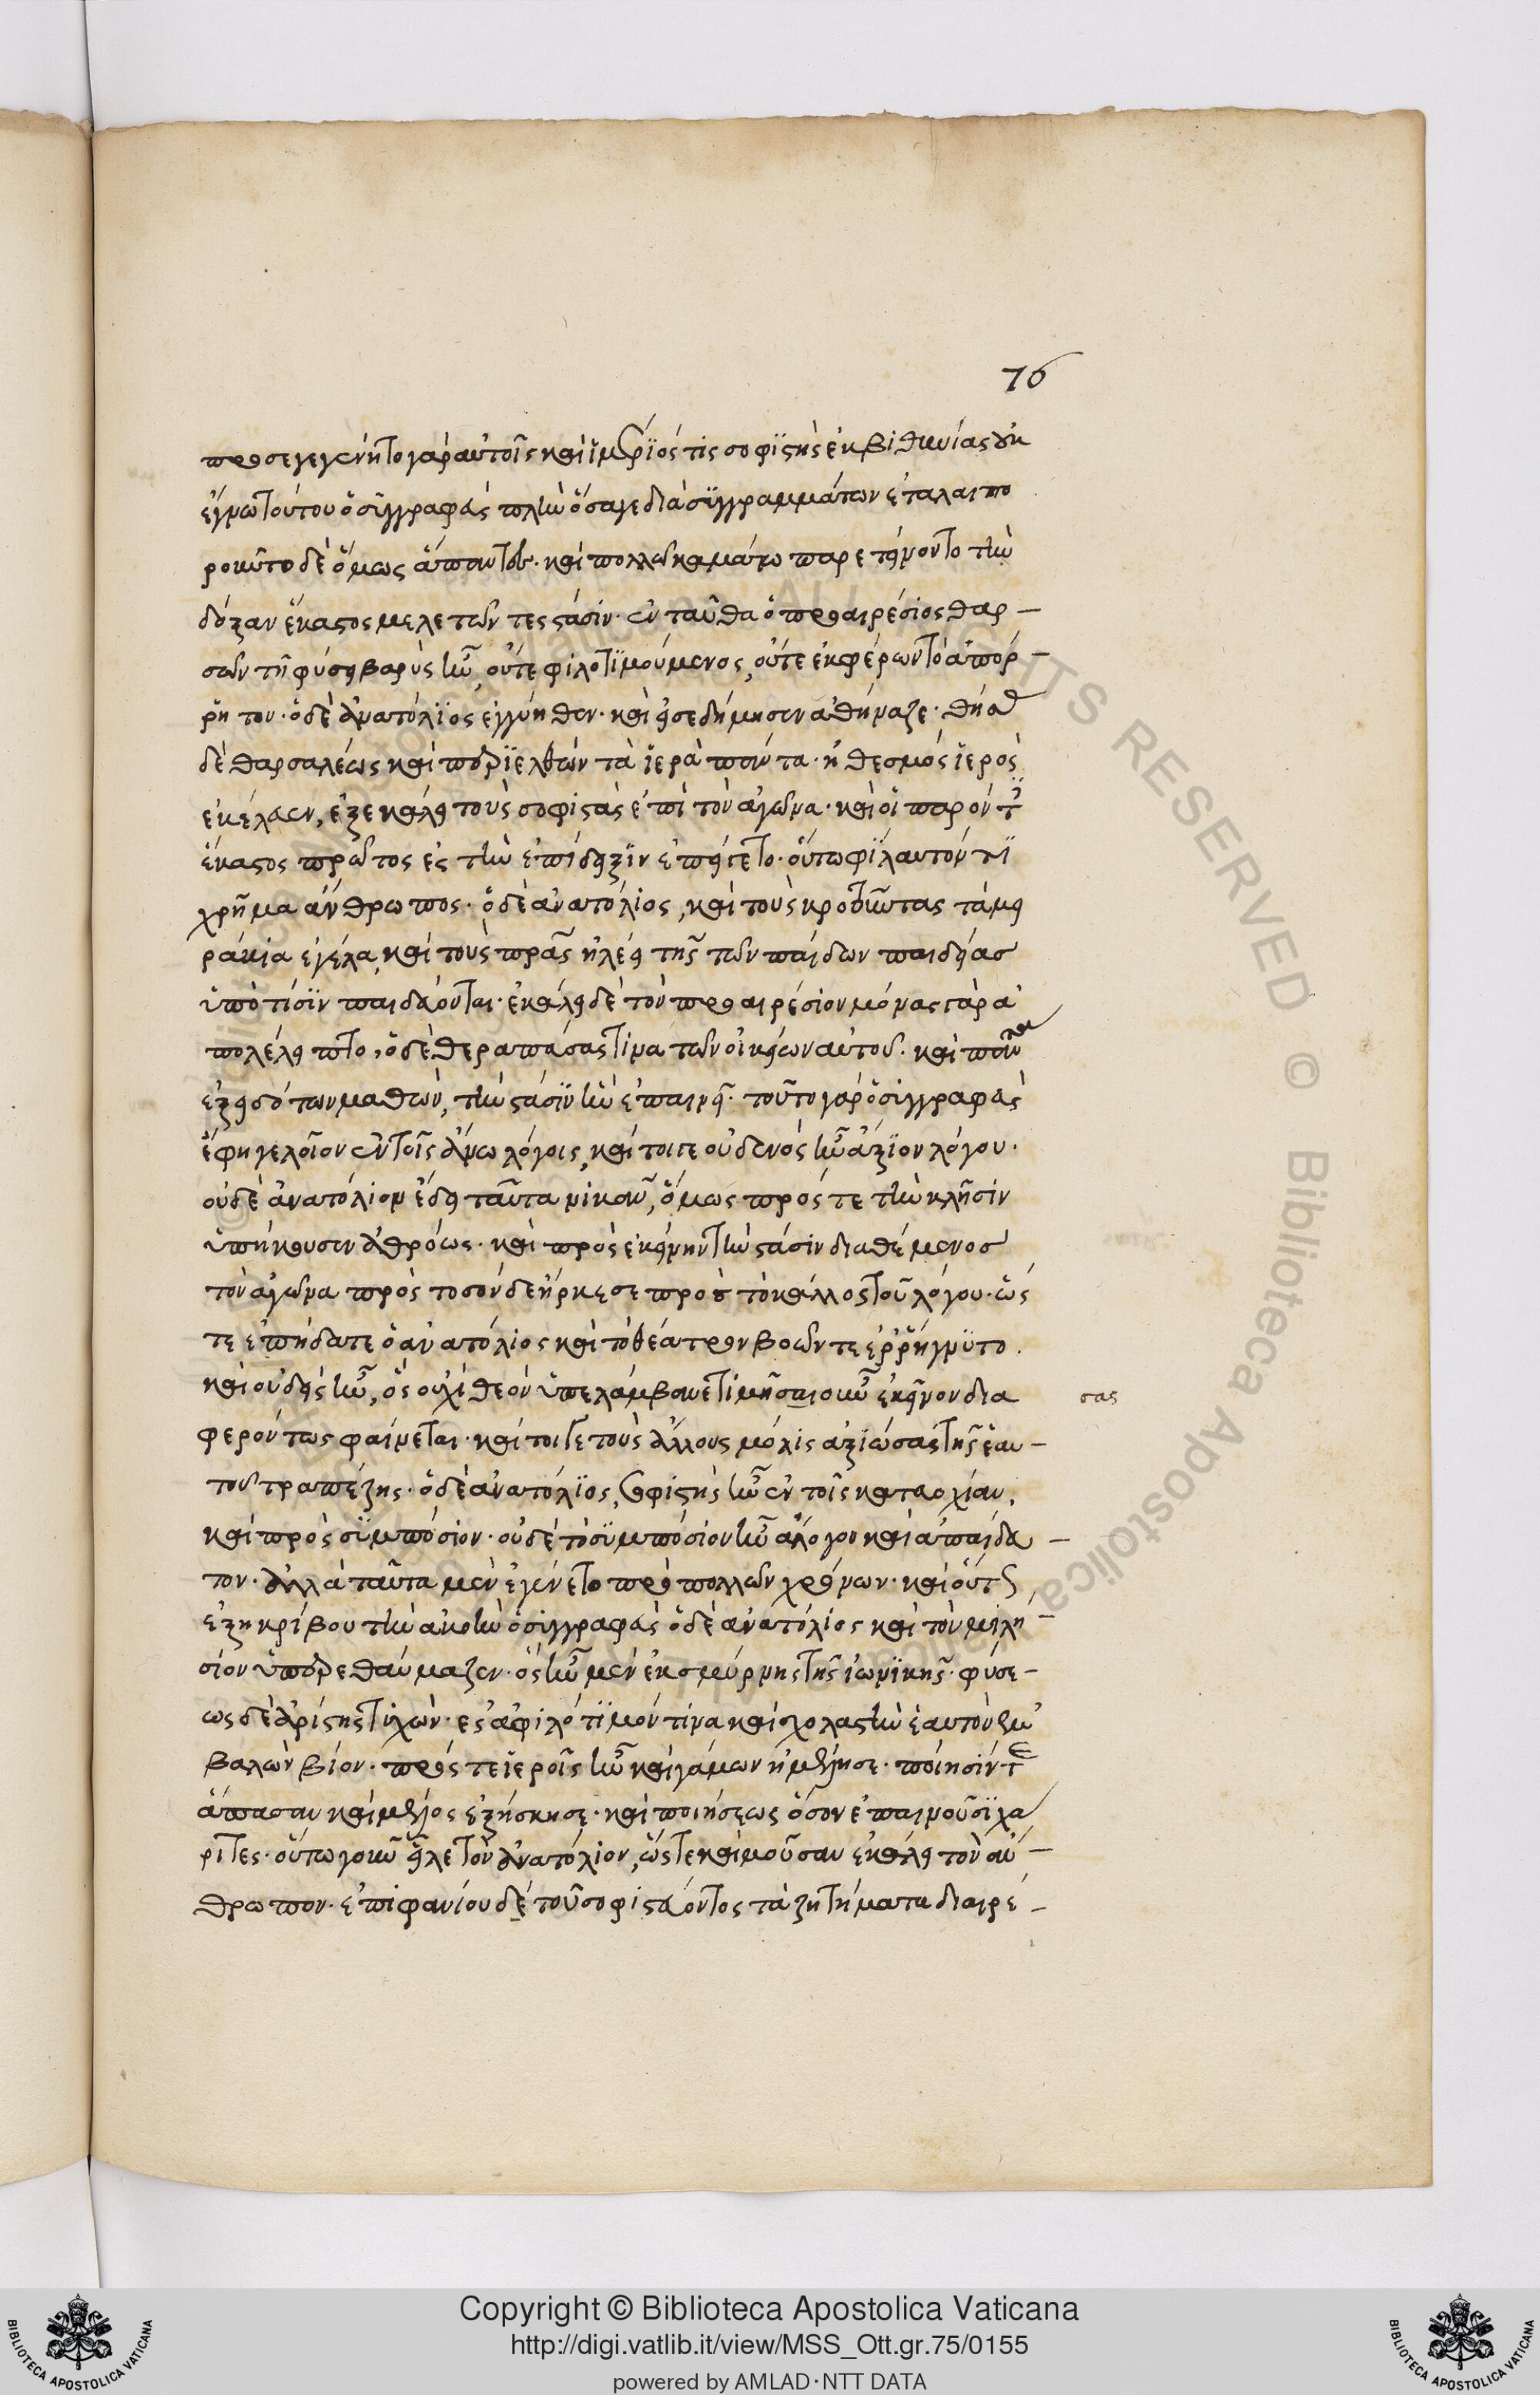 76
προσεγεγένητο γὰρ αὐτοῖς καὶ ἱμέριός τις σοφιστὴς ἐκ βιθυνίας οὐκ
ἔγνω τοῦτον ὁ συγγραφεὺς πλὴν ὅσα γε διὰ συγγραμμάτων ἐταλαιπω
ροῦντο δὲ ὅμως ἅπαντες. καὶ πολλῶ καμάτω παρετείνοντο τὴν
δόξαν ἕκαστος μελετῶντες στάσιν. ἐνταῦθα ὁ προαιρέσιος θαρ-
σῶν τῆ φύσει βαρὺς ἦν, οὔτε φιλοτιμούμενος, οὔτε ἐκφέρων τὸ ἀπόρ-
ρητον. ὁ δὲ ἀνατόλιος ἐγγύηθεν. καὶ εἰσεδήμησεν ἀθήναζε. θύσας
δὲ θαρσαλέως καὶ περιελθὼν τὰ ἱερὰ πάντα. ἧ θεσμὸς ἱερὸς
ἐκέλευεν, ἐξεκάλει τοὺς σοφιστὰς ἐπὶ τὸν ἀγῶνα. καὶ οἱ παρόντες
ἕκαστος πρῶτος ἐς τὴν ἐπίδειξιν ἠπείγετο. οὕτω φίλαυτόν τι
χρῆμα ἄνθρωπος. ὁ δὲ ἀνατόλιος, καὶ τοὺς κροτοῦντας τὰ μει
ράκια ἐγέλα, καὶ τοὺς πρᾶς ἠλέει τῆς τῶν παίδων παιδείας
ὑπὸ τίσιν παιδεύονται. ἐκάλει δὲ τὸν προαιρέσιον μόνος γὰρ ἀ
πολέλειπτο, ὁ δὲ θεραπεύσας τινα τῶν οἰκείων αὐτοῦ. καὶ πάντα
ἐξειδότων μαθὼν, τὴν στάσιν ἣν ἐπαινεῖ. τοῦτο γὰρ ὁ συγγραφεὺς
ἔφη γελοῖον ἐν τοῖς ἄνω λόγοις, καί τοιγε οὐδενὸς ἦν ἄξιον λόγου.
οὐδὲ ἀνατόλιον ἔδει ταῦτα νικᾶν, ὅμως πρός τε τὴν κλῆσιν
ὑπήκουσεν ἀθρόως. καὶ πρὸς ἐκείνην τὴν στάσιν διαθέμενος
τὸν ἀγῶνα πρὸς τοσόνδε ἤρκεσε πρὸς τὸ κάλλος τοῦ λόγου. ὥς
τε ἐπήδα τε ὁ ἀνατόλιος καὶ τὸ θέατρον βοῶν τε ἐρρήγνυτο.
καὶ οὐδεὶς ἦν, ὃς οὐχὶ θεὸν ὑπελάμβανε τιμήσαι οὖν ἐκεῖνον δια
σας
φερόντως φαίνεται. καί τοιγε τοὺς ἄλλους μόλις ἀξιώσας τῆς ἑαυ-
τοῦ τραπέζης. ὁ δὲ ἀνατόλιος, σοφιστὴς ἦν ἐν τοῖς κατ' εὐωχίαν,
καὶ πρὸς συμπόσιον. οὐδὲ τὸ συμπόσιον ἦν ἄλογον καὶ ἀπαίδευ-
τον. ἀλλὰ ταῦτα μὲν ἐγένετο πρὸ πολλῶν χρόνων. καὶ οὕτως
ἐξηκρίβου τὴν ἀκοὴν ὁ συγγραφεὺς ὁ δὲ ἀνατόλιος καὶ τὸν μιλή-
σιον ὑπερεθαύμαζεν. ὃς ἦν μὲν ἐκ σμύρνης τῆς ἰωνικῆς. φύσε-
ως δὲ ἀρίστης τυχὼν. ἐς ἀφιλότιμόν τινα καὶ σχολαστὴν ἑαυτὸν ἐμ
βαλὼν βίον. πρός τε ἱεροῖς ἦν καὶ γάμων ἠμέλησε. ποίησίν τε
ἅπασαν καὶ μέλος ἐξήσκησε. καὶ ποιήσεως ὅσον ἐπαινοῦσι χά
ριτες. οὕτω γοῦν εἷλε τὸν ἀνατόλιον, ὥστε καὶ μοῦσαν ἐκάλει τὸν ἄν-
θρωπον. ἐπιφανίου δὲ τοῦ σοφιστεύοντος τὰ ζητήματα διαιρέ-
Copyright © Biblioteca Apostolica Vaticana
http://digi.vatlib.it/view/MSS_Ott.gr.75/0155
powered by AMLAD · NTT DATA